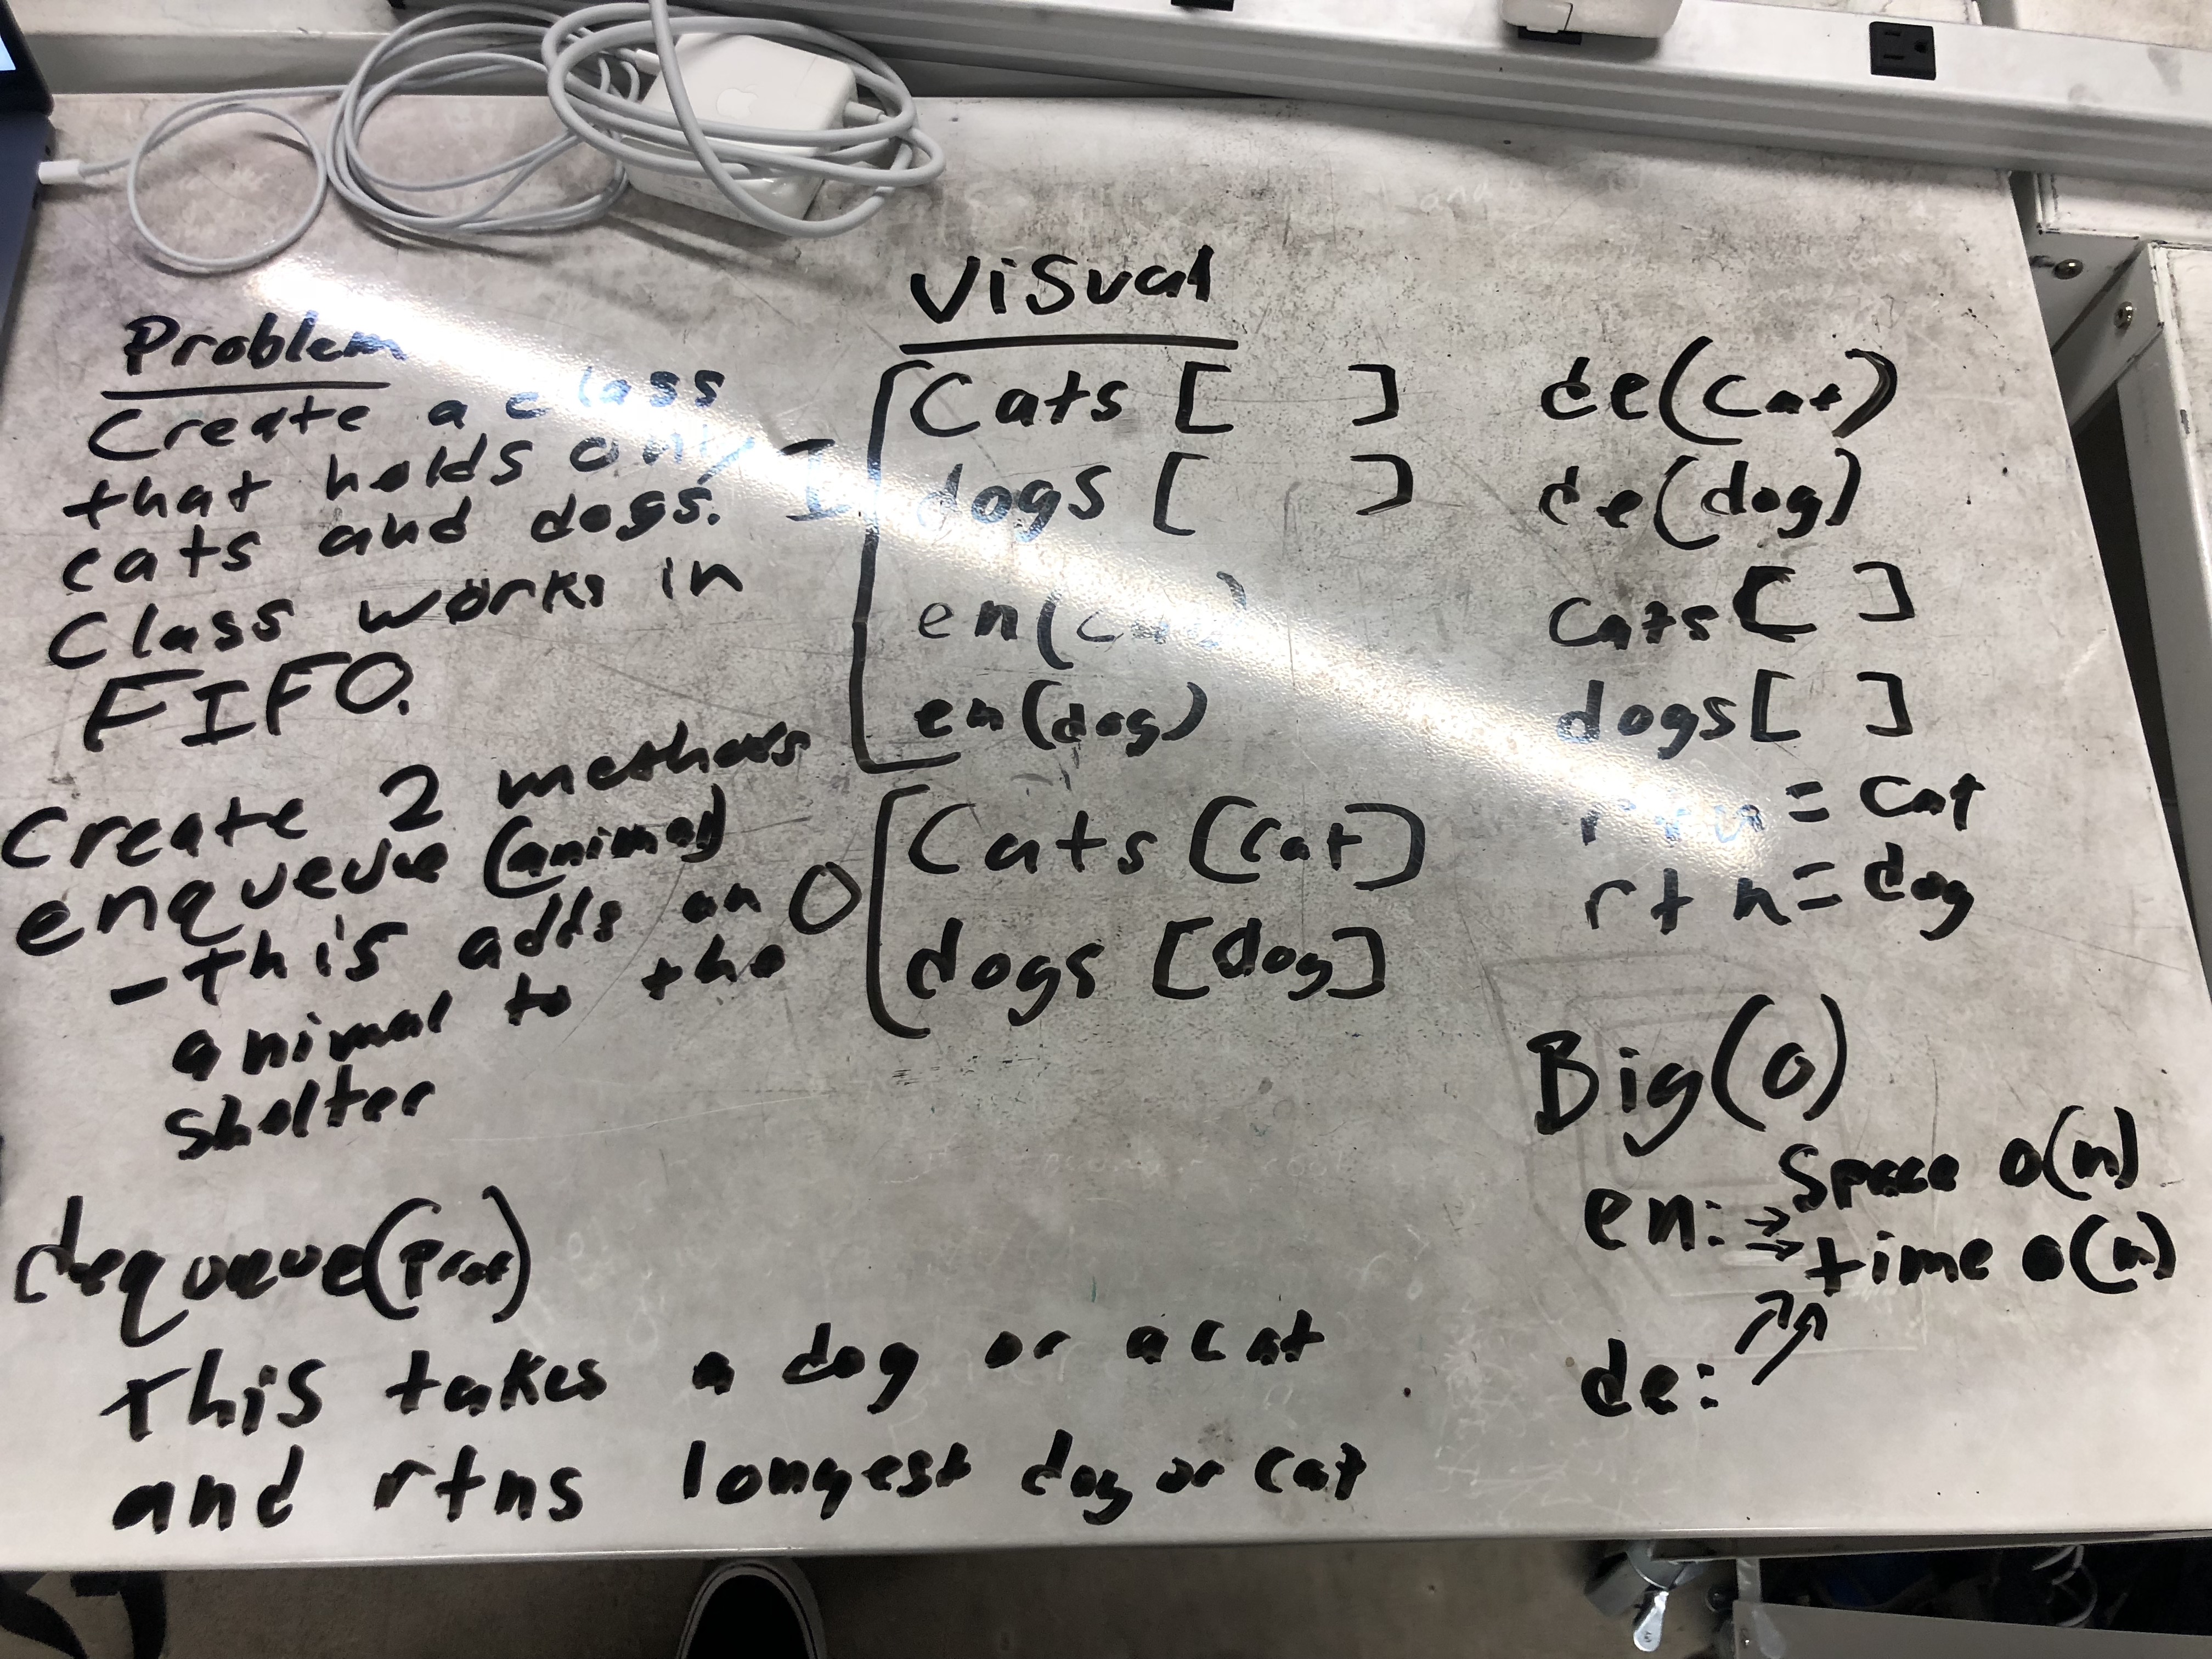 Problem
Create a class
that holds only
cats and dogs.
Class works in
FIFO.
Create 2 methods
enqueue (animal)
- this adds an
animal to the
shelter
dequeue(Pref)
This takes a dog or a cat
and rtns longest dog or cat
Visual
I
Cats [ ]
dogs [ ]
en(cat)
en(dog)
O
Cats [cat]
dogs [dog]
de(cat)
de(dog)
Cats [ ]
dogs [ ]
rtn = cat
rtn = dog
Big(o)
en: → Space o(n)
→ time o(n)
de: ↗↗